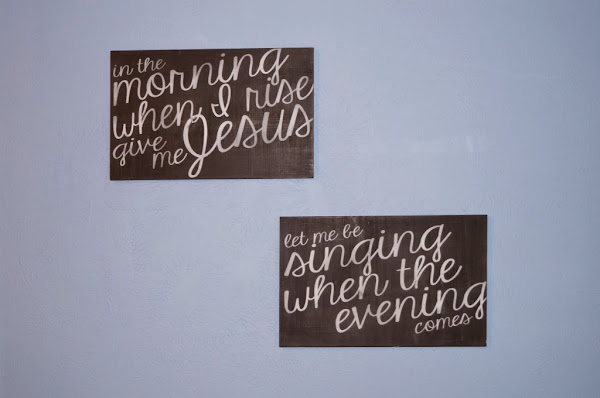 in the
morning
when I rise
give me Jesus
let me be
singing
when the
evening
comes